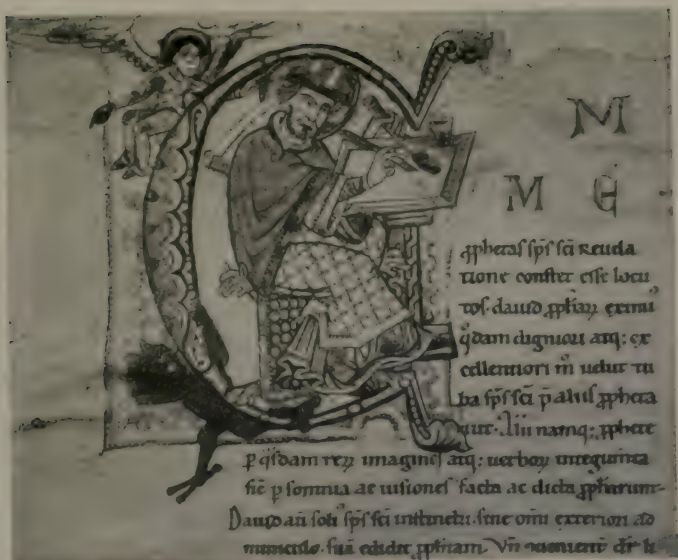 C
M
M E
ꝓphetas sp̄s sc̄i reuela
tione constet esse locu
tos. dauid ꝓphar̄ eximi⁹
q̊dam digniori atq; ex
cellentiori m̊ uelut tu
ba sp̄s sc̄i p̄ aliis ꝓpheta
uit. Alii namq; ꝓphete
ꝑ q̊sdam rer̄ imagines atq; uerbor̄ integumta
ꝑ somnia ac uisiones facta ac dicta ꝓpharunt.
Dauid aū soli⁹ sp̄s sc̄i instinctu. sine om̄i exteriori ad
miniculo. suā edidit ꝓphiam. Vn̄